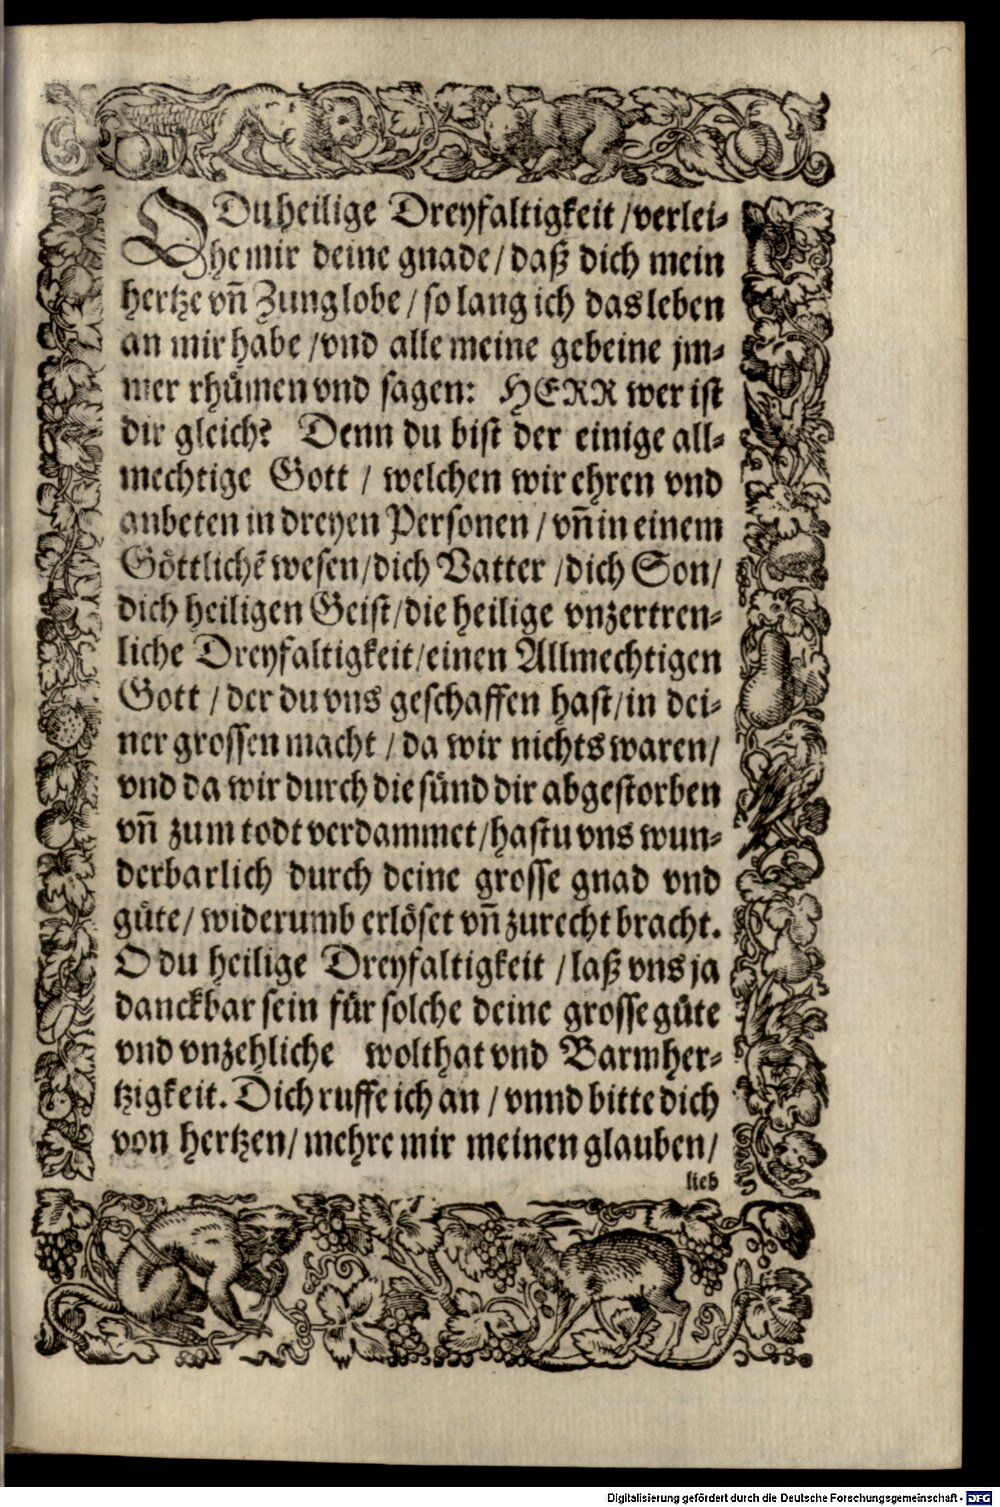 O Du heilige Dreyfaltigkeit / verlei-
he mir deine gnade / daß dich mein
hertze vñ Zung lobe / so lang ich das leben
an mir habe / vnd alle meine gebeine jm-
mer rhümen vnd sagen: HERR wer ist
dir gleich? Denn du bist der einige all-
mechtige Gott / welchen wir ehren vnd
anbeten in dreyen Personen / vñ in einem
Göttlichẽ wesen / dich Vatter / dich Son /
dich heiligen Geist / die heilige vnzertren-
liche Dreyfaltigkeit / einen Allmechtigen
Gott / der du vns geschaffen hast / in dei-
ner grossen macht / da wir nichts waren /
vnd da wir durch die sünd dir abgestorben
vñ zum todt verdammet / hastu vns wun-
derbarlich durch deine grosse gnad vnd
güte / widerumb erlöset vñ zurecht bracht.
O du heilige Dreyfaltigkeit / laß vns ja
danckbar sein für solche deine grosse güte
vnd vnzehliche wolthat vnd Barmher-
tzigkeit. Dich ruffe ich an / vnnd bitte dich
von hertzen / mehre mir meinen glauben /
lieb
Digitalisierung gefördert durch die Deutsche Forschungsgemeinschaft - DFG